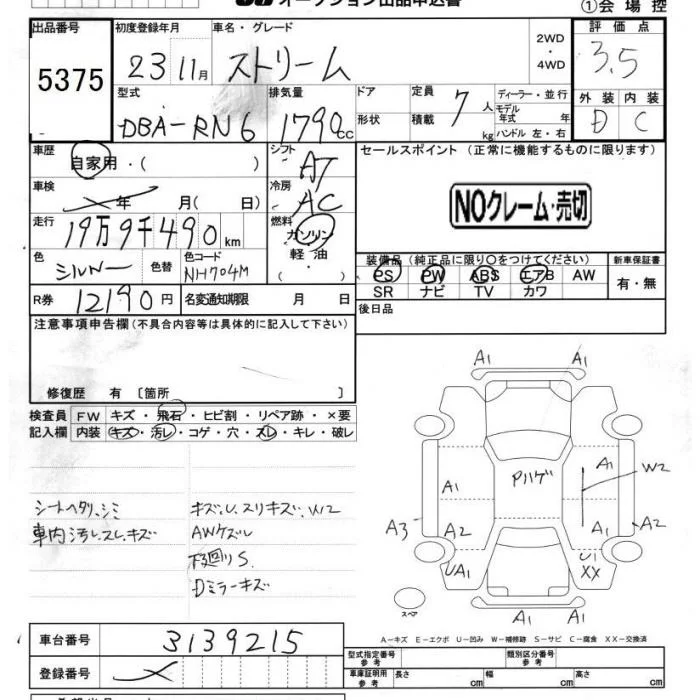 オークション出品申込書
①会場控
出品番号
5375
初度登録年月
23 11月
車名・グレード
ストリーム
2WD
・
4WD
評価点
3.5
外装 内装
D C
型式
DBA-RN6
排気量
1790cc
ドア
形状
定員
7人
積載
kg
ディーラー・並行
モデル
年式 年
ハンドル 左・右
車歴
自家用・( )
シフト
AT
セールスポイント (正常に機能するものに限ります)
NOクレーム・売切
車検
年 月( 日)
冷房
AC
走行
19万9千490km
燃料
ガソリン
軽油
・
( )
色
シルバー
色替
色コード
NH704M
装備品(純正品に限り○をつけてください)
PS PW ABS エアB AW
SR ナビ TV カワ
新車保証書
有・無
R券 12190円
名変通知期限 月 日
後日品
注意事項申告欄(不具合内容等は具体的に記入して下さい)
修復歴 有 〔箇所 〕
検査員
記入欄
FW キズ・飛石・ヒビ割・リペア跡・×要
内装 キズ・汚レ・コゲ・穴・スレ・キレ・破レ
シートヘタリ、シミ
車内汚レ、スレ、キズ
キズ、U、スリキズ、W2
AWケズレ
下廻りS
Dミラーキズ
A1 A1
A1
A1
A1
W2
Pハゲ
A3
A2
A1
A2
UA1
U1
XX
スペア
A1 A1
A-キズ E-エクボ U-凹み W-補修跡 S-サビ C-腐食 XX-交換済
車台番号
3139215
登録番号
型式指定番号
参考
類別区分番号
参考
車庫証明用
参考
長さ cm
幅 cm
高さ cm